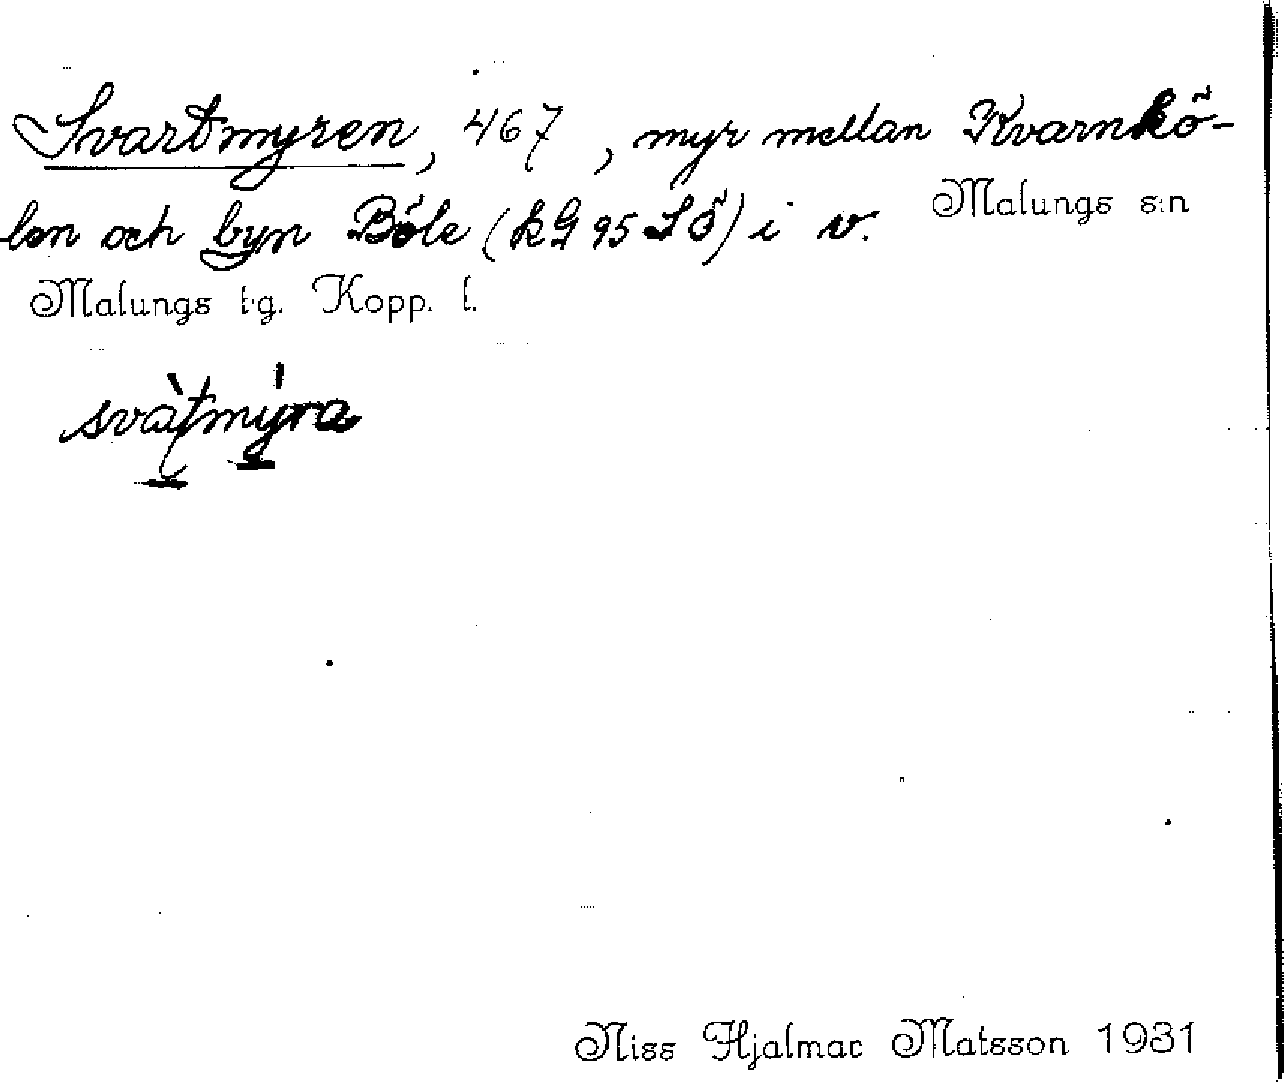 Svartmyren, 467, myr mellan Kvarnkö-
len och byn Böle (kG 95 SÖ) i v.
Malungs s:n
Malungs t.g. Kopp. l.
svàtmýra
Niss Hjalmar Matsson 1931